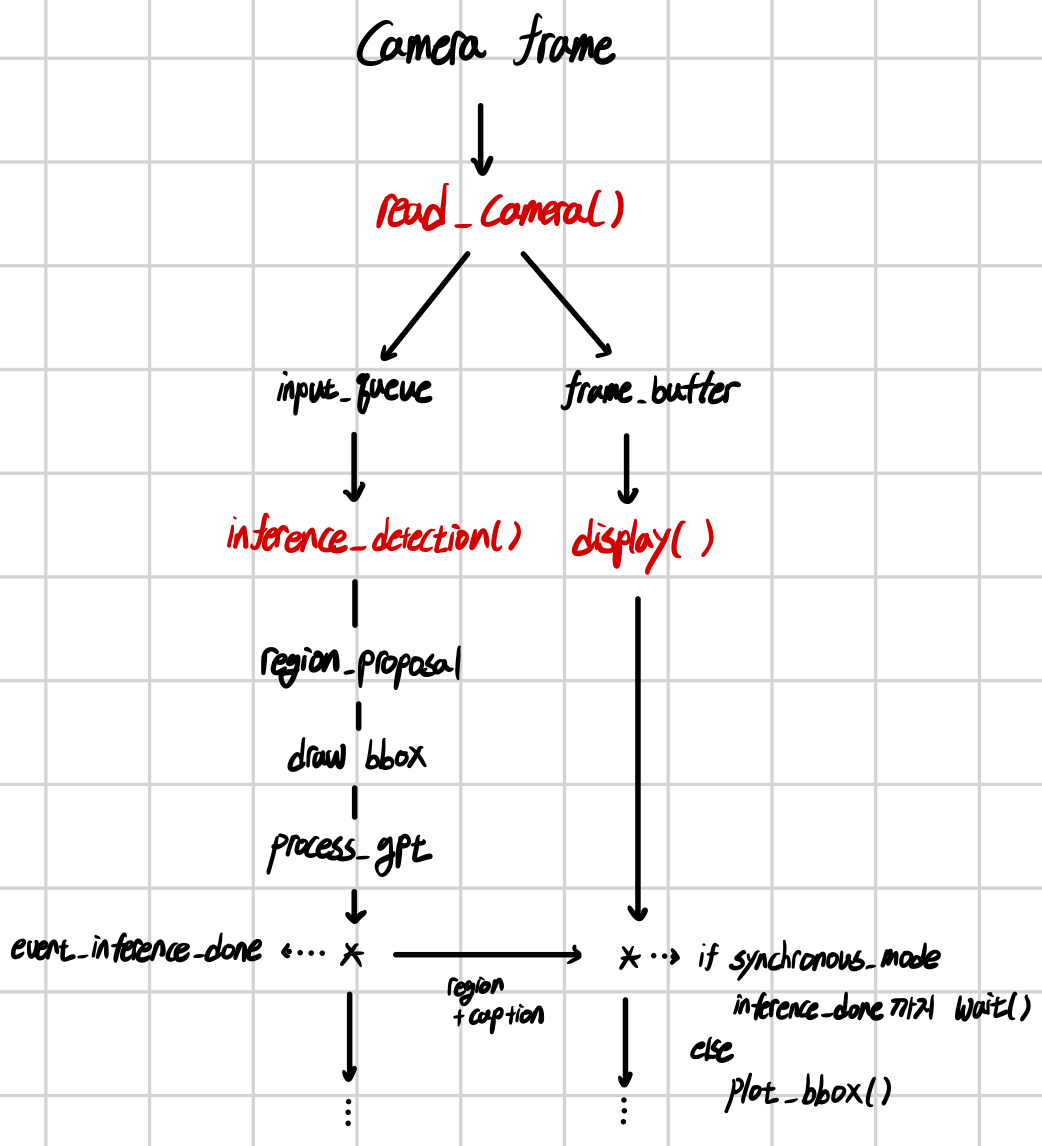 Camera frame
read_camera()
input_queue
frame_buffer
inference_detection()
display()
region_proposal
draw bbox
process_gpt
event_inference_done
region
+ caption
if synchronous_mode
inference_done 까지 wait()
else
plot_bbox()